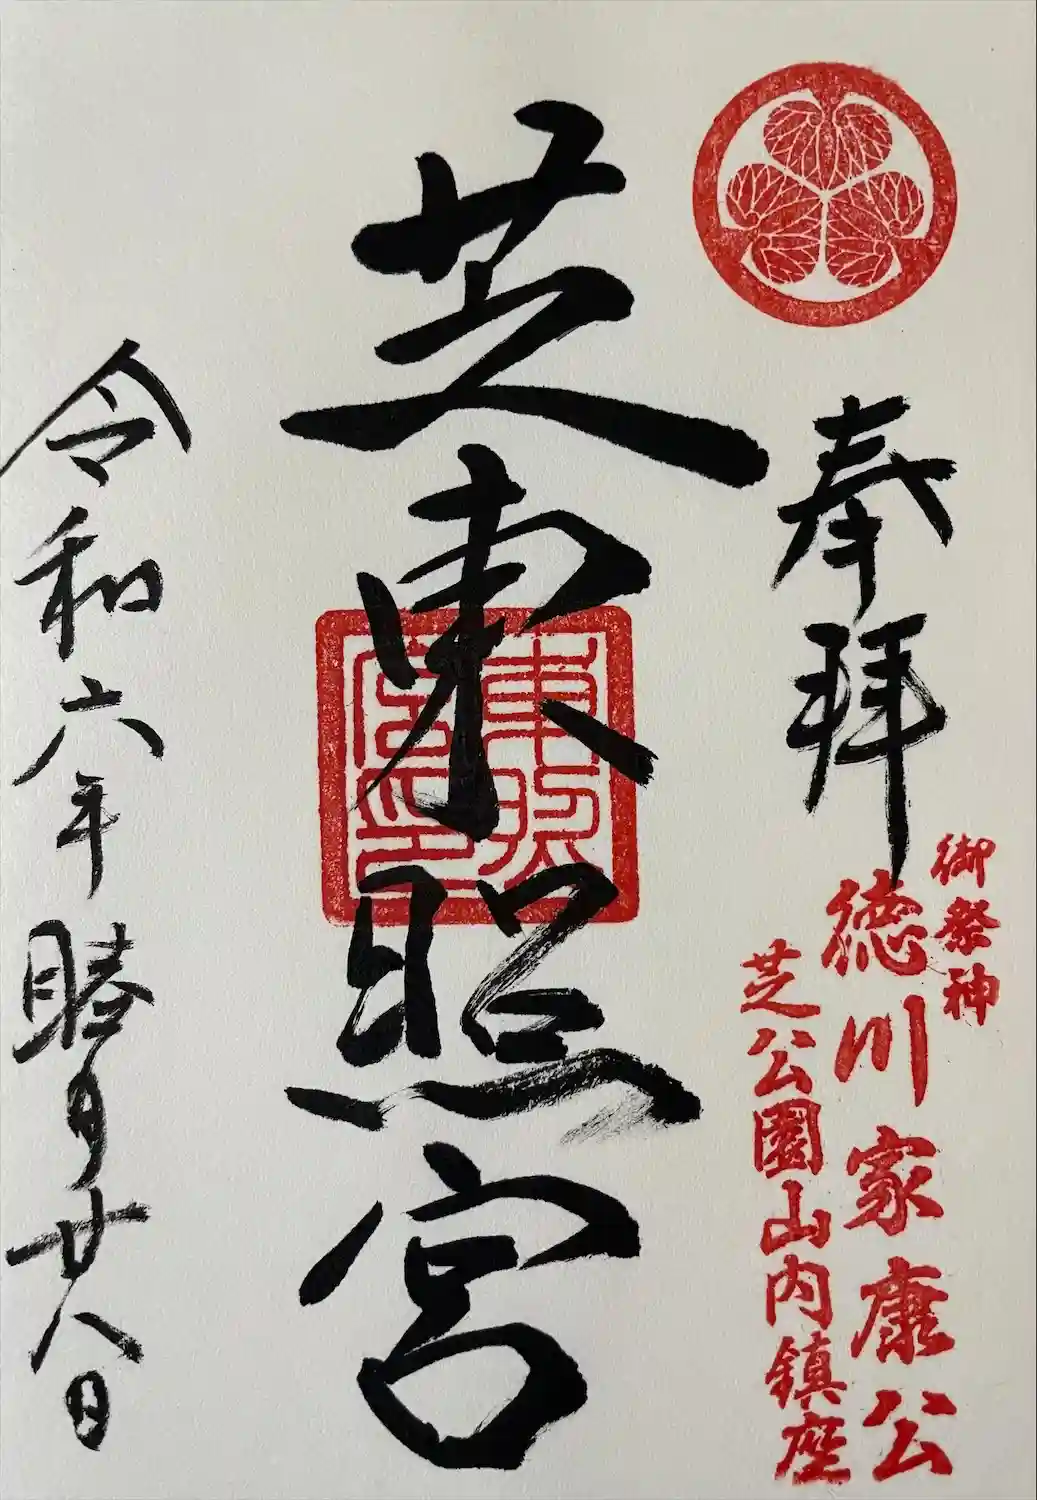 奉拝
御祭神
徳川家康公
芝公園山内鎮座
芝東照宮
東照
宮印
令和六年睦月廿八日